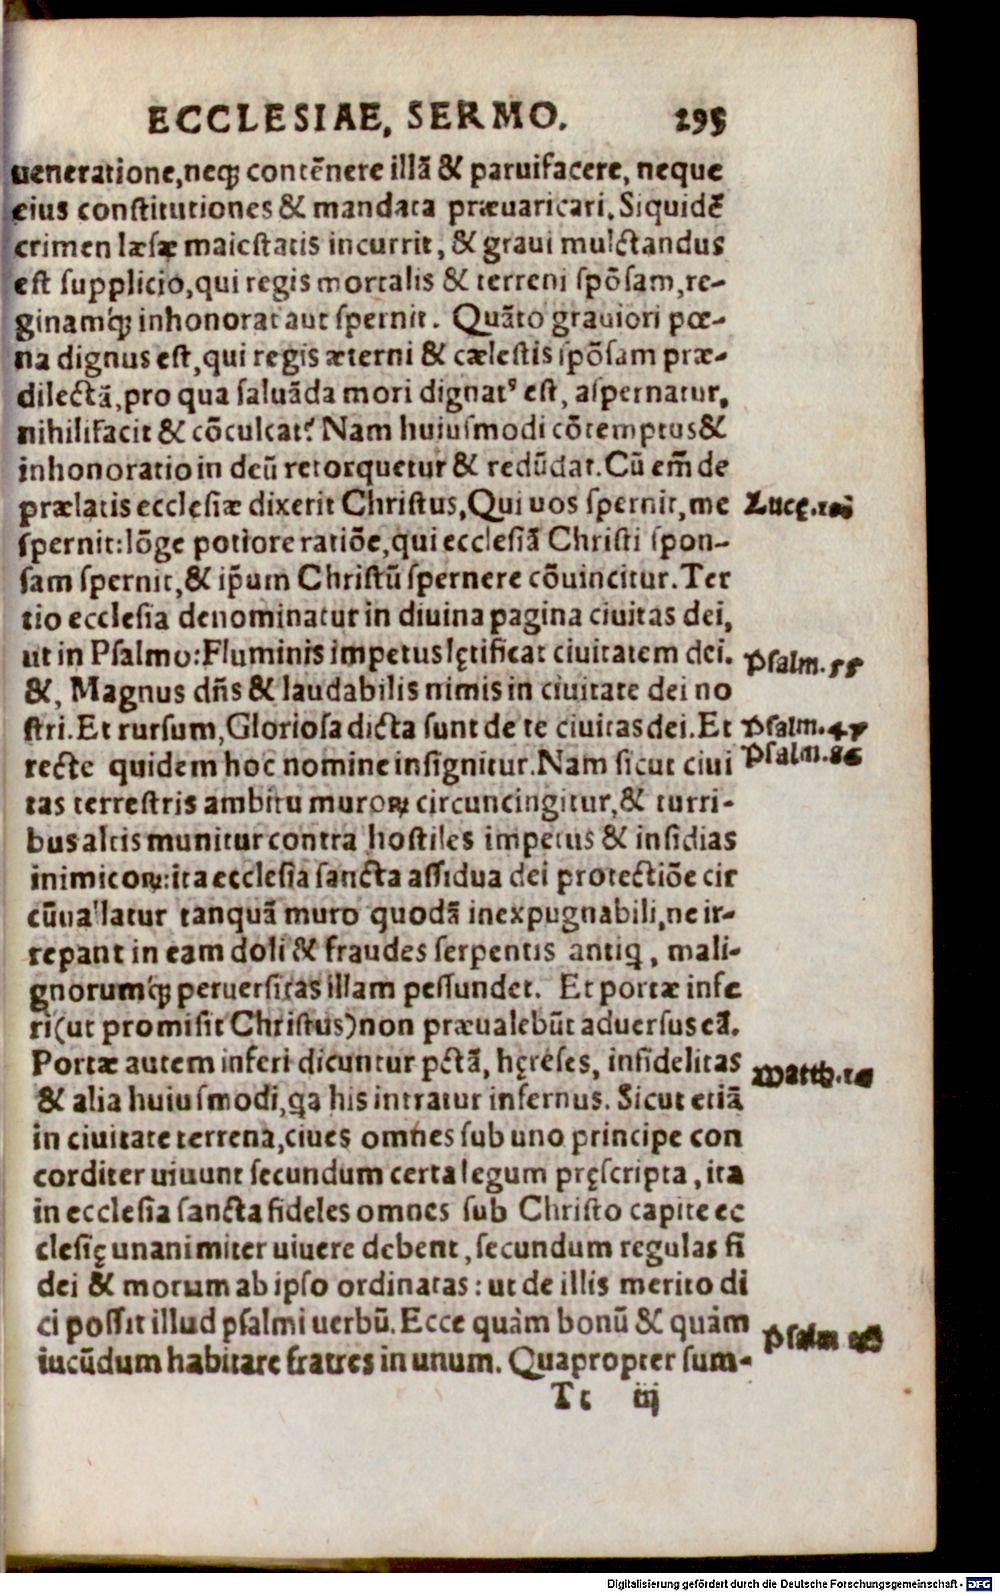 ECCLESIAE, SERMO. 295
ueneratione,neqꝫ contēnere illā & paruifacere, neque
eius constitutiones & mandata præuaricari. Siquidē
crimen læsæ maiestatis incurrit, & graui mulctandus
est supplicio,qui regis mortalis & terreni spōsam,re-
ginamq́ꝫ inhonorat aut spernit. Quāto grauiori pœ-
na dignus est,qui regis æterni & cælestis spōsam præ-
dilectā,pro qua saluāda mori dignatꝰ est, aspernatur,
nihilifacit & cōculcat? Nam huiusmodi cōtemptus &
inhonoratio in deū retorquetur & redūdat. Cū em̄ de
prælatis ecclesiæ dixerit Christus, Qui uos spernit, me
Lucę.10
spernit: lōge potiore ratiōe,qui ecclesiā Christi spon-
sam spernit,& ip̄um Christū spernere cōuincitur. Ter
tio ecclesia denominatur in diuina pagina ciuitas dei,
ut in Psalmo: Fluminis impetus lętificat ciuitatem dei.
Psalm.55
&, Magnus dn̄s & laudabilis nimis in ciuitate dei no
stri. Et rursum, Gloriosa dicta sunt de te ciuitas dei. Et
Psalm.47
recte quidem hoc nomine insignitur. Nam sicut ciui
Psalm.86
tas terrestris ambitu muroꝝ circuncingitur,& turri-
bus altis munitur contra hostiles impetus & insidias
inimicoꝝ: ita ecclesia sancta assidua dei protectiōe cir
cūuallatur tanquā muro quodā inexpugnabili,ne ir-
repant in eam doli & fraudes serpentis antiꝗ, mali-
gnorumq́ꝫ peruersitas illam pessundet. Et portæ infe
ri(ut promisit Christus)non præualebūt aduersus eā.
Portæ autem inferi dicuntur pctā, hęreses, infidelitas
Matth.16
& alia huiusmodi,ꝗa his intratur infernus. Sicut etiā
in ciuitate terrena,ciues omnes sub uno principe con
corditer uiuunt secundum certa legum pręscripta, ita
in ecclesia sancta fideles omnes sub Christo capite ec
clesię unanimiter uiuere debent, secundum regulas fi
dei & morum ab ipso ordinatas: ut de illis merito di
ci possit illud psalmi uerbū. Ecce quàm bonū & quàm
Psalm
iucūdum habitare fratres in unum. Quapropter sum-
Tt iij
Digitalisierung gefördert durch die Deutsche Forschungsgemeinschaft - DFG